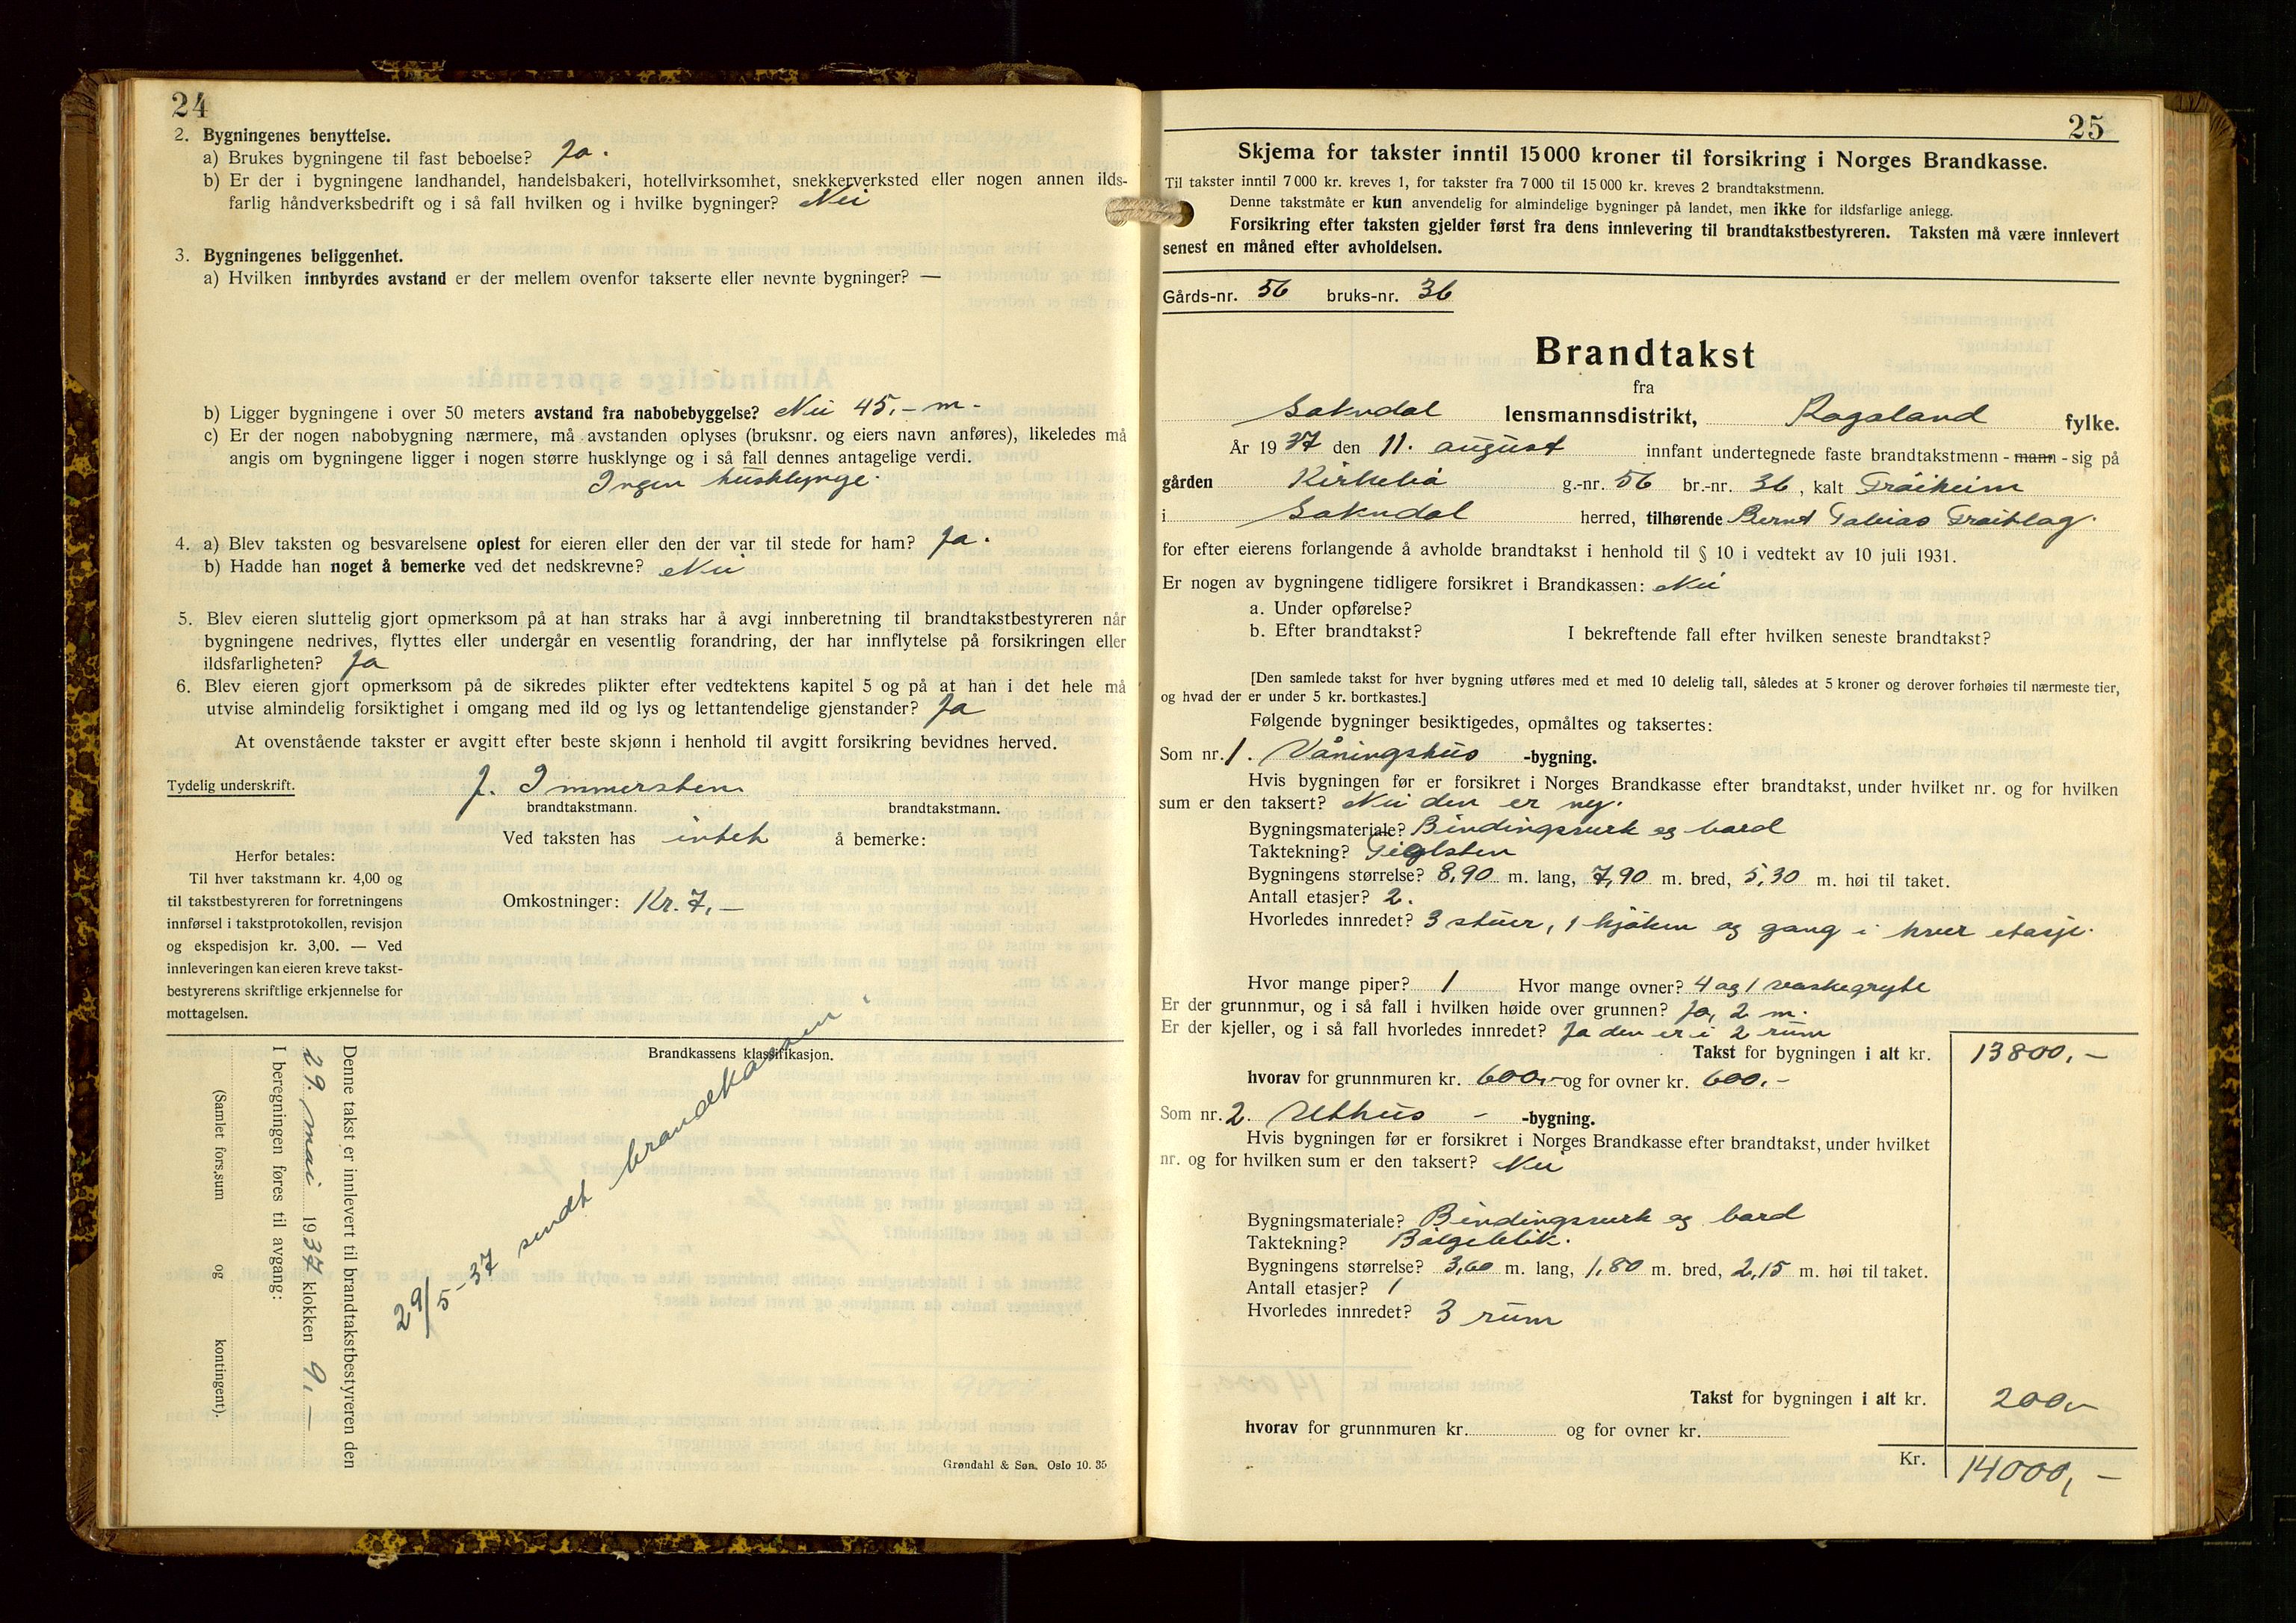 24
2. Bygningenes benyttelse.
a) Brukes bygningene til fast beboelse? Ja.
b) Er der i bygningene landhandel, handelsbakeri, hotellvirksomhet, snekkerverksted eller nogen annen ilds-
farlig håndverksbedrift og i så fall hvilken og i hvilke bygninger? Nei
3. Bygningenes beliggenhet.
a) Hvilken innbyrdes avstand er der mellem ovenfor takserte eller nevnte bygninger? —
b) Ligger bygningene i over 50 meters avstand fra nabobebyggelse? Nei 45,- m.
c) Er der nogen nabobygning nærmere, må avstanden oplyses (bruksnr. og eiers navn anføres), likeledes må
angis om bygningene ligger i nogen større husklynge og i så fall dennes antagelige verdi.
Ingen husklynge.
4. a) Blev taksten og besvarelsene oplest for eieren eller den der var til stede for ham? Ja.
b) Hadde han noget å bemerke ved det nedskrevne? Nei
5. Blev eieren sluttelig gjort opmerksom på at han straks har å avgi innberetning til brandtakstbestyreren når
bygningene nedrives, flyttes eller undergår en vesentlig forandring, der har innflytelse på forsikringen eller
ildsfarligheten? Ja
6. Blev eieren gjort opmerksom på de sikredes plikter efter vedtektens kapitel 5 og på at han i det hele må
utvise almindelig forsiktighet i omgang med ild og lys og lettantendelige gjenstander? Ja
At ovenstående takster er avgitt efter beste skjønn i henhold til avgitt forsikring bevidnes herved.
Tydelig underskrift. J. Immerstein
brandtakstmann. brandtakstmann.
Ved taksten has intet å bemerke:
Herfor betales:
Til hver takstmann kr. 4,00 og
til takstbestyreren for forretningens
innførsel i takstprotokollen, revisjon
og ekspedisjon kr. 3,00. — Ved
innleveringen kan eieren kreve takst-
bestyrerens skriftlige erkjennelse for
mottagelsen.
Omkostninger: Kr. 7,-
Brandkassens klassifikasjon.
29/5-37 sendt brandekassen
Denne takst er innlevert til brandtakstbestyreren den
29. mai 1937 klokken 9,—
I beregningen føres til avgang:
(Samlet fors.sum og kontingent).
Grøndahl & Søn, Oslo 10. 35
25
Skjema for takster inntil 15000 kroner til forsikring i Norges Brandkasse.
Til takster inntil 7000 kr. kreves 1, for takster fra 7000 til 15000 kr. kreves 2 brandtakstmenn.
Denne takstmåte er kun anvendelig for almindelige bygninger på landet, men ikke for ildsfarlige anlegg.
Forsikring efter taksten gjelder først fra dens innlevering til brandtakstbestyreren. Taksten må være innlevert
senest en måned efter avholdelsen.
Gårds-nr. 56 bruks-nr. 36
Brandtakst
fra
Sokndal lensmannsdistrikt, Rogaland fylke.
År 1937 den 11. august innfant undertegnede faste brandtakstmenn - mann - sig på
gården Kirkebø g.-nr. 56 br.-nr. 36, kalt Trøiheim
i Sokndal herred, tilhørende Bernt Tobias Frøitlog.
for efter eierens forlangende å avholde brandtakst i henhold til § 10 i vedtekt av 10 juli 1931.
Er nogen av bygningene tidligere forsikret i Brandkassen: Nei
a. Under opførelse?
b. Efter brandtakst? I bekreftende fall efter hvilken seneste brandtakst?
[Den samlede takst for hver bygning utføres med et med 10 delelig tall, således at 5 kroner og derover forhøies til nærmeste tier,
og hvad der er under 5 kr. bortkastes.]
Følgende bygninger besiktigedes, opmåltes og taksertes:
Som nr. 1. Våningshus -bygning.
Hvis bygningen før er forsikret i Norges Brandkasse efter brandtakst, under hvilket nr. og for hvilken
sum er den taksert? Nei den er ny.
Bygningsmateriale? Bindingsverk og bord
Taktekning? Teglsten
Bygningens størrelse? 8,90 m. lang, 7,90 m. bred, 5,30 m. høi til taket.
Antall etasjer? 2.
Hvorledes innredet? 3 stuer, 1 kjøken og gang i hver etasje.
Hvor mange piper? 1 Hvor mange ovner? 4 og 1 vaskegryte
Er der grunnmur, og i så fall i hvilken høide over grunnen? Ja, 2 m.
Er der kjeller, og i så fall hvorledes innredet? Ja den er i 2 rum
Takst for bygningen i alt kr. 13800,-
hvorav for grunnmuren kr. 600,- og for ovner kr. 600,-
Som nr. 2. Uthus - -bygning.
Hvis bygningen før er forsikret i Norges Brandkasse efter brandtakst, under hvilket
nr. og for hvilken sum er den taksert? Nei
Bygningsmateriale? Bindingsverk og bord
Taktekning? Bølgeblik.
Bygningens størrelse? 3,60 m. lang, 1,80 m. bred, 2,15 m. høi til taket.
Antall etasjer? 1
Hvorledes innredet? 3 rum
Takst for bygningen i alt kr. 200,-
hvorav for grunnmuren kr. og for ovner kr.
Kr. 14000,-